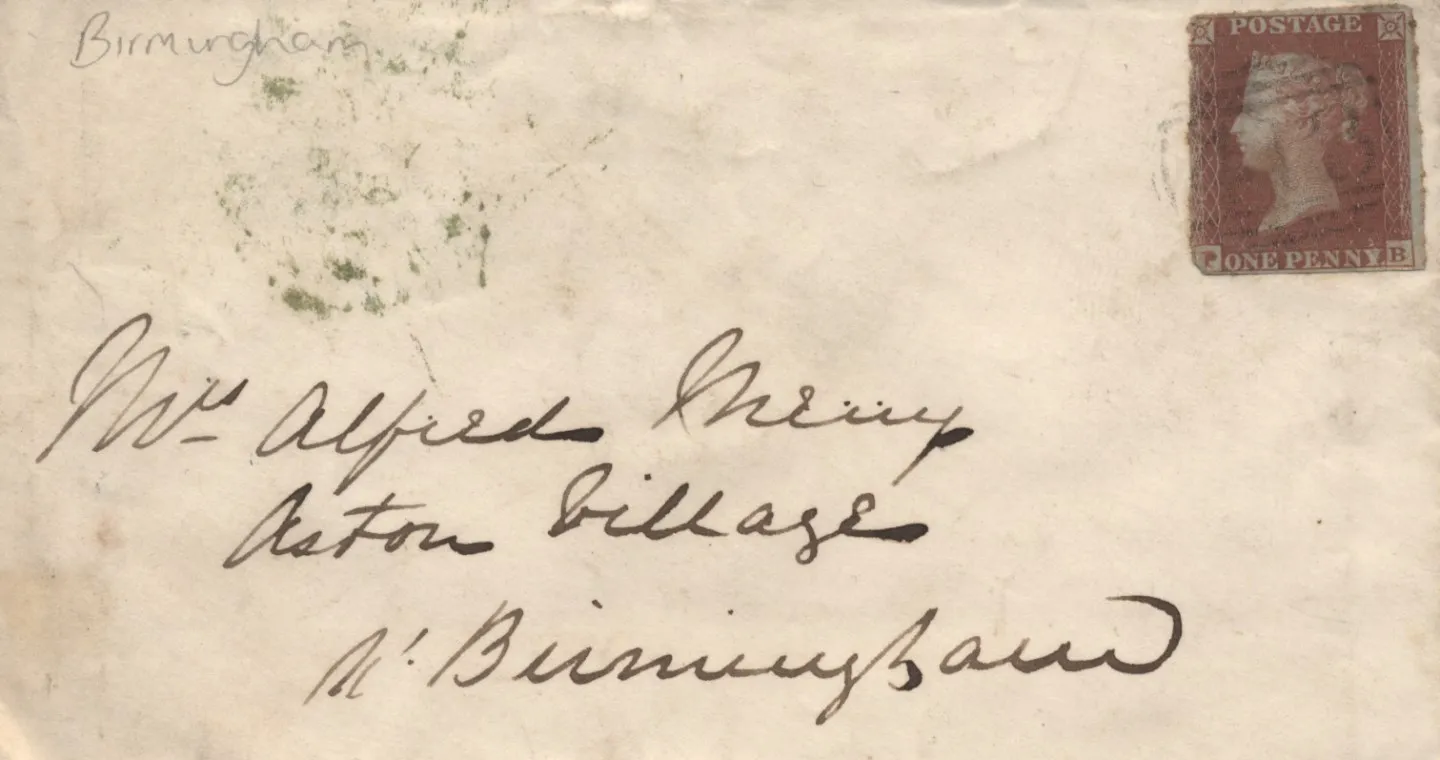 Birmingham
POSTAGE
ONE PENNY
B
Mrs Alfred Merry
Aston Village
Nr. Birmingham